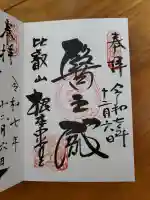 奉拝
令和七年
十二月六日
醫王殿
比叡山
根本中堂
奉拝
令和七年
十二月六日